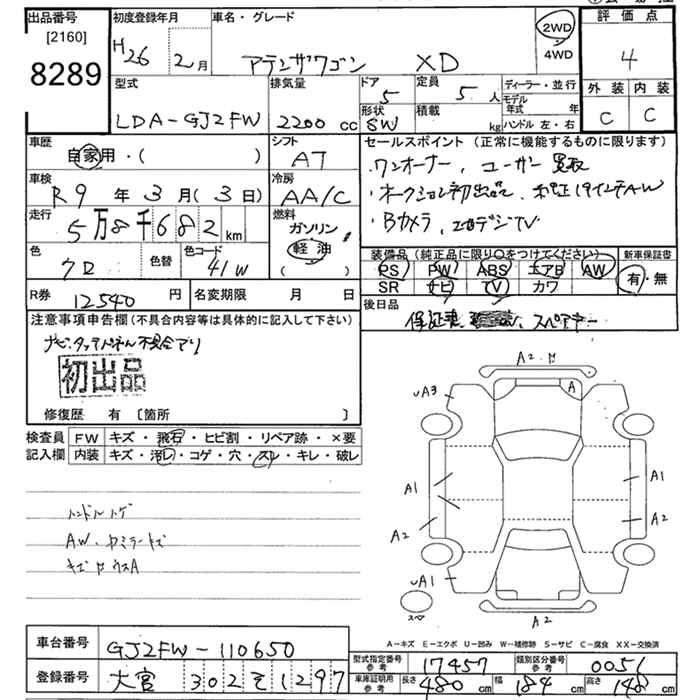 出品番号
[2160]
8289
初度登録年月
H26 2月
車名・グレード
アテンザワゴン XD
2WD
4WD
評価点
4
外装 内装
C C
型式
LDA-GJ2FW
排気量
2200 cc
ドア
5
形状
SW
定員
5 人
積載
kg
ディーラー・並行
モデル年式 年
ハンドル 左・右
車歴
自家用・( )
シフト
AT
車検
R9年3月(3日)
冷房
AA/C
走行
5万8千682km
燃料
ガソリン
軽油
( )
色
クロ
色替
色コード
41W
R券
12540円
名変期限 月 日
セールスポイント(正常に機能するものに限ります)
・ワンオーナー、ユーザー買取
・オークション初出品、純正19インチAW
・Bカメラ、フルデジTV
装備品(純正品に限り○をつけてください)
新車保証書
PS PW ABS エアB AW
SR ナビ TV カワ
有・無
後日品
保証書、スペアキー
注意事項申告欄(不具合内容等は具体的に記入して下さい)
ナビタッチパネル不具合アリ
初出品
修復歴 有 [箇所 ]
検査員記入欄
FW キズ・飛石・ヒビ割・リペア跡・×要
内装 キズ・汚レ・コゲ・穴・スレ・キレ・破レ
ハンドルハゲ
AW、ドアミラーキズ
A2
A
A3
A1
A1
A2
A2
A1
スペ
A2
A-キズ E-エクボ U-凹み W-補修跡 S-サビ C-腐食 XX-交換済
車台番号
GJ2FW-110650
登録番号
大宮 302 そ 1297
型式指定番号 参考
17457
類別区分番号 参考
0051
車庫証明用 参考
長さ 480 cm 幅 184 cm 高さ 148 cm